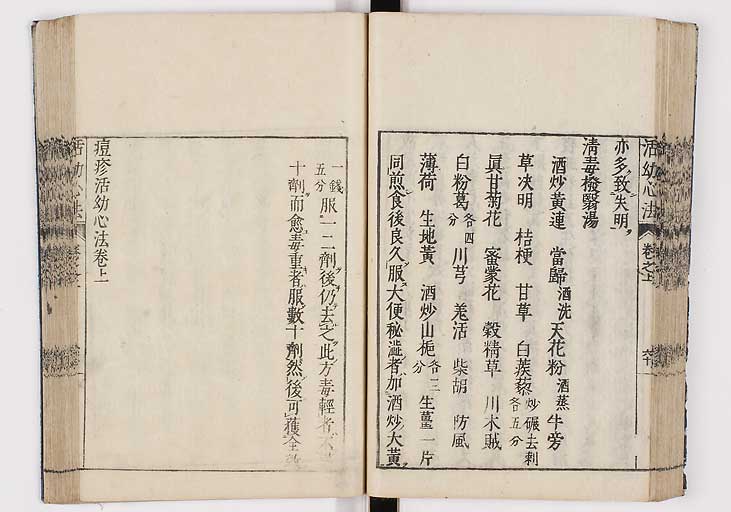 活幼心法 卷之上 六十
亦多致失明
清毒撥翳湯
酒炒黃連 當歸酒洗 天花粉酒蒸 牛旁
草决明 桔梗 甘草 白蒺藜炒碾去刺各五分
眞甘菊花 蜜蒙花 穀精草 川木賊
白粉葛各四分 川芎 羗活 柴胡 防風
薄荷 生地黃 酒炒山梔各三分 生薑一片
同煎食後良久服大便秘澁者加酒炒大黃
一錢五分服一二劑後仍去之此方毒輕者
十劑而愈毒重者服數十劑然後可獲全
痘疹活幼心法卷上
活幼心法